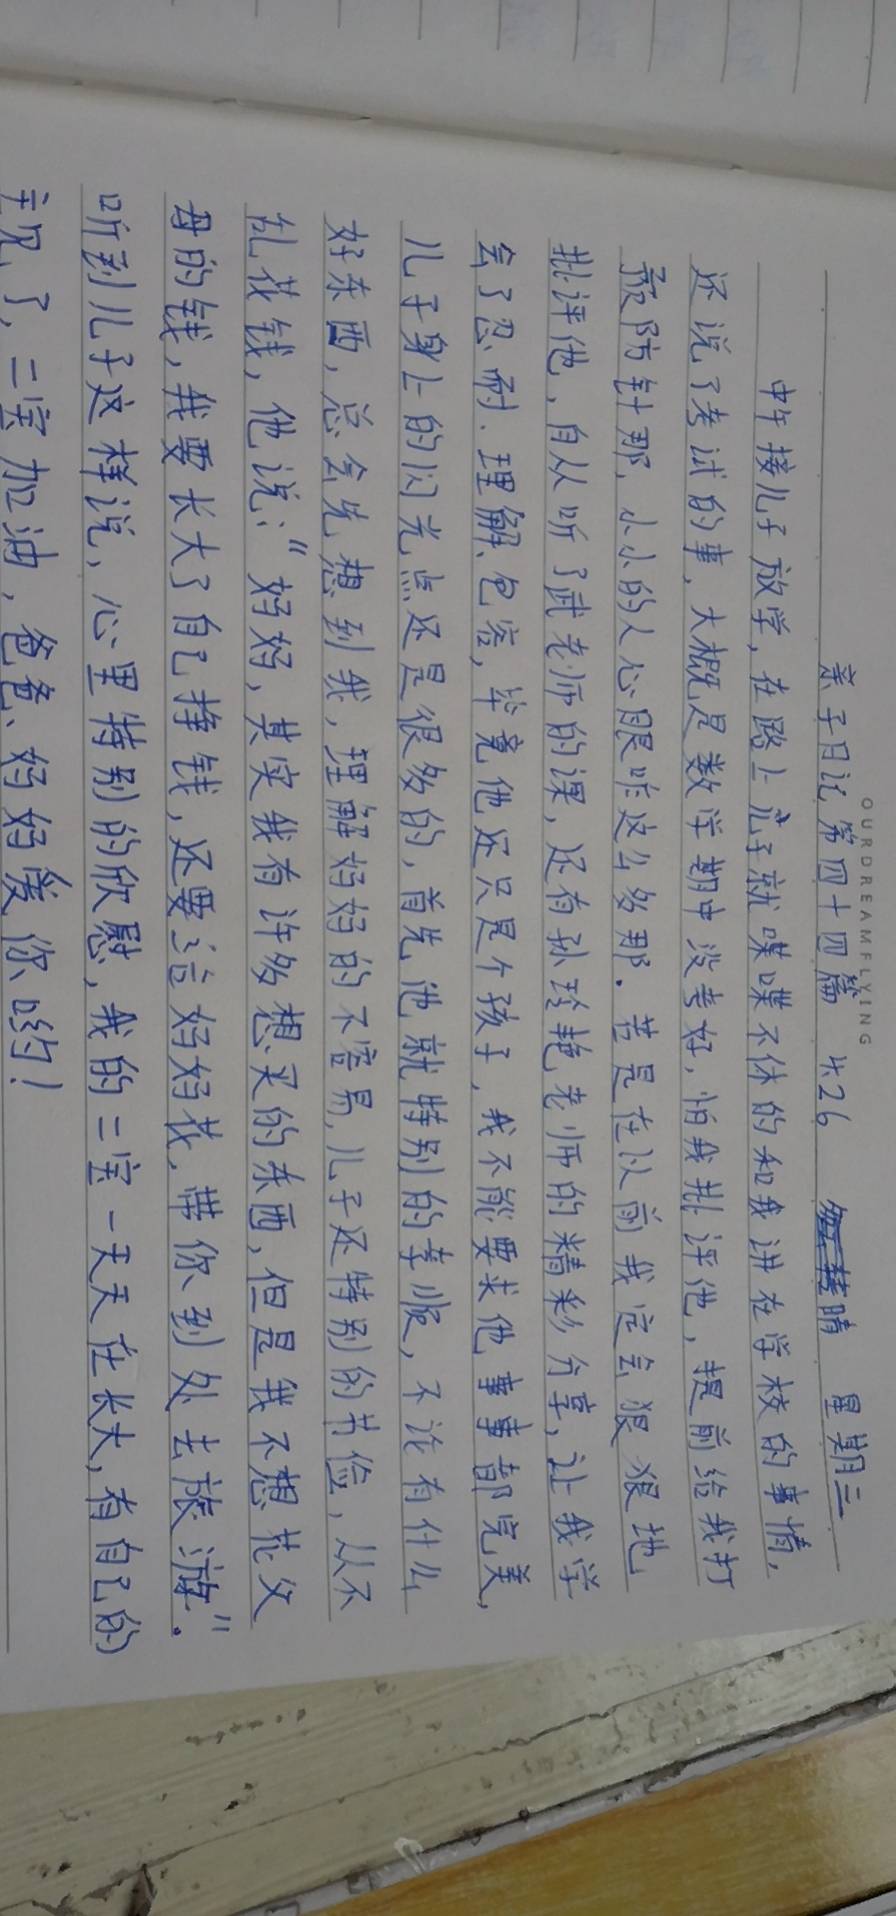 OURDREAMFLYING
亲子日记第四十四篇 4.26 晴 星期三
中午接儿子放学，在路上儿子就喋喋不休的和我讲在学校的事情，
还说了考试的事，大概是数学期中没考好，怕我批评他，提前给我打
预防针那，小小的人心眼咋这么多那．若是在以前我定会狠狠地
批评他，自从听了武老师的课，还有孙玲艳老师的精彩分享，让我学
会了忍耐．理解、包容，毕竟他还只是个孩子，我不能要求他事事都完美，
儿子身上的闪光点还是很多的，首先他就特别的孝顺，不论有什么
好东西，总会先想到我，理解妈妈的不容易，儿子还特别的节俭，从不
乱花钱，他说：“妈妈，其实我有许多想买的东西，但是我不想花父
母的钱，我要长大了自己挣钱，还要给妈妈花，带你到处去旅游”．
听到儿子这样说，心里特别的欣慰，我的二宝一天天在长大，有自己的
主见了，二宝加油，爸爸、妈妈爱你哟！